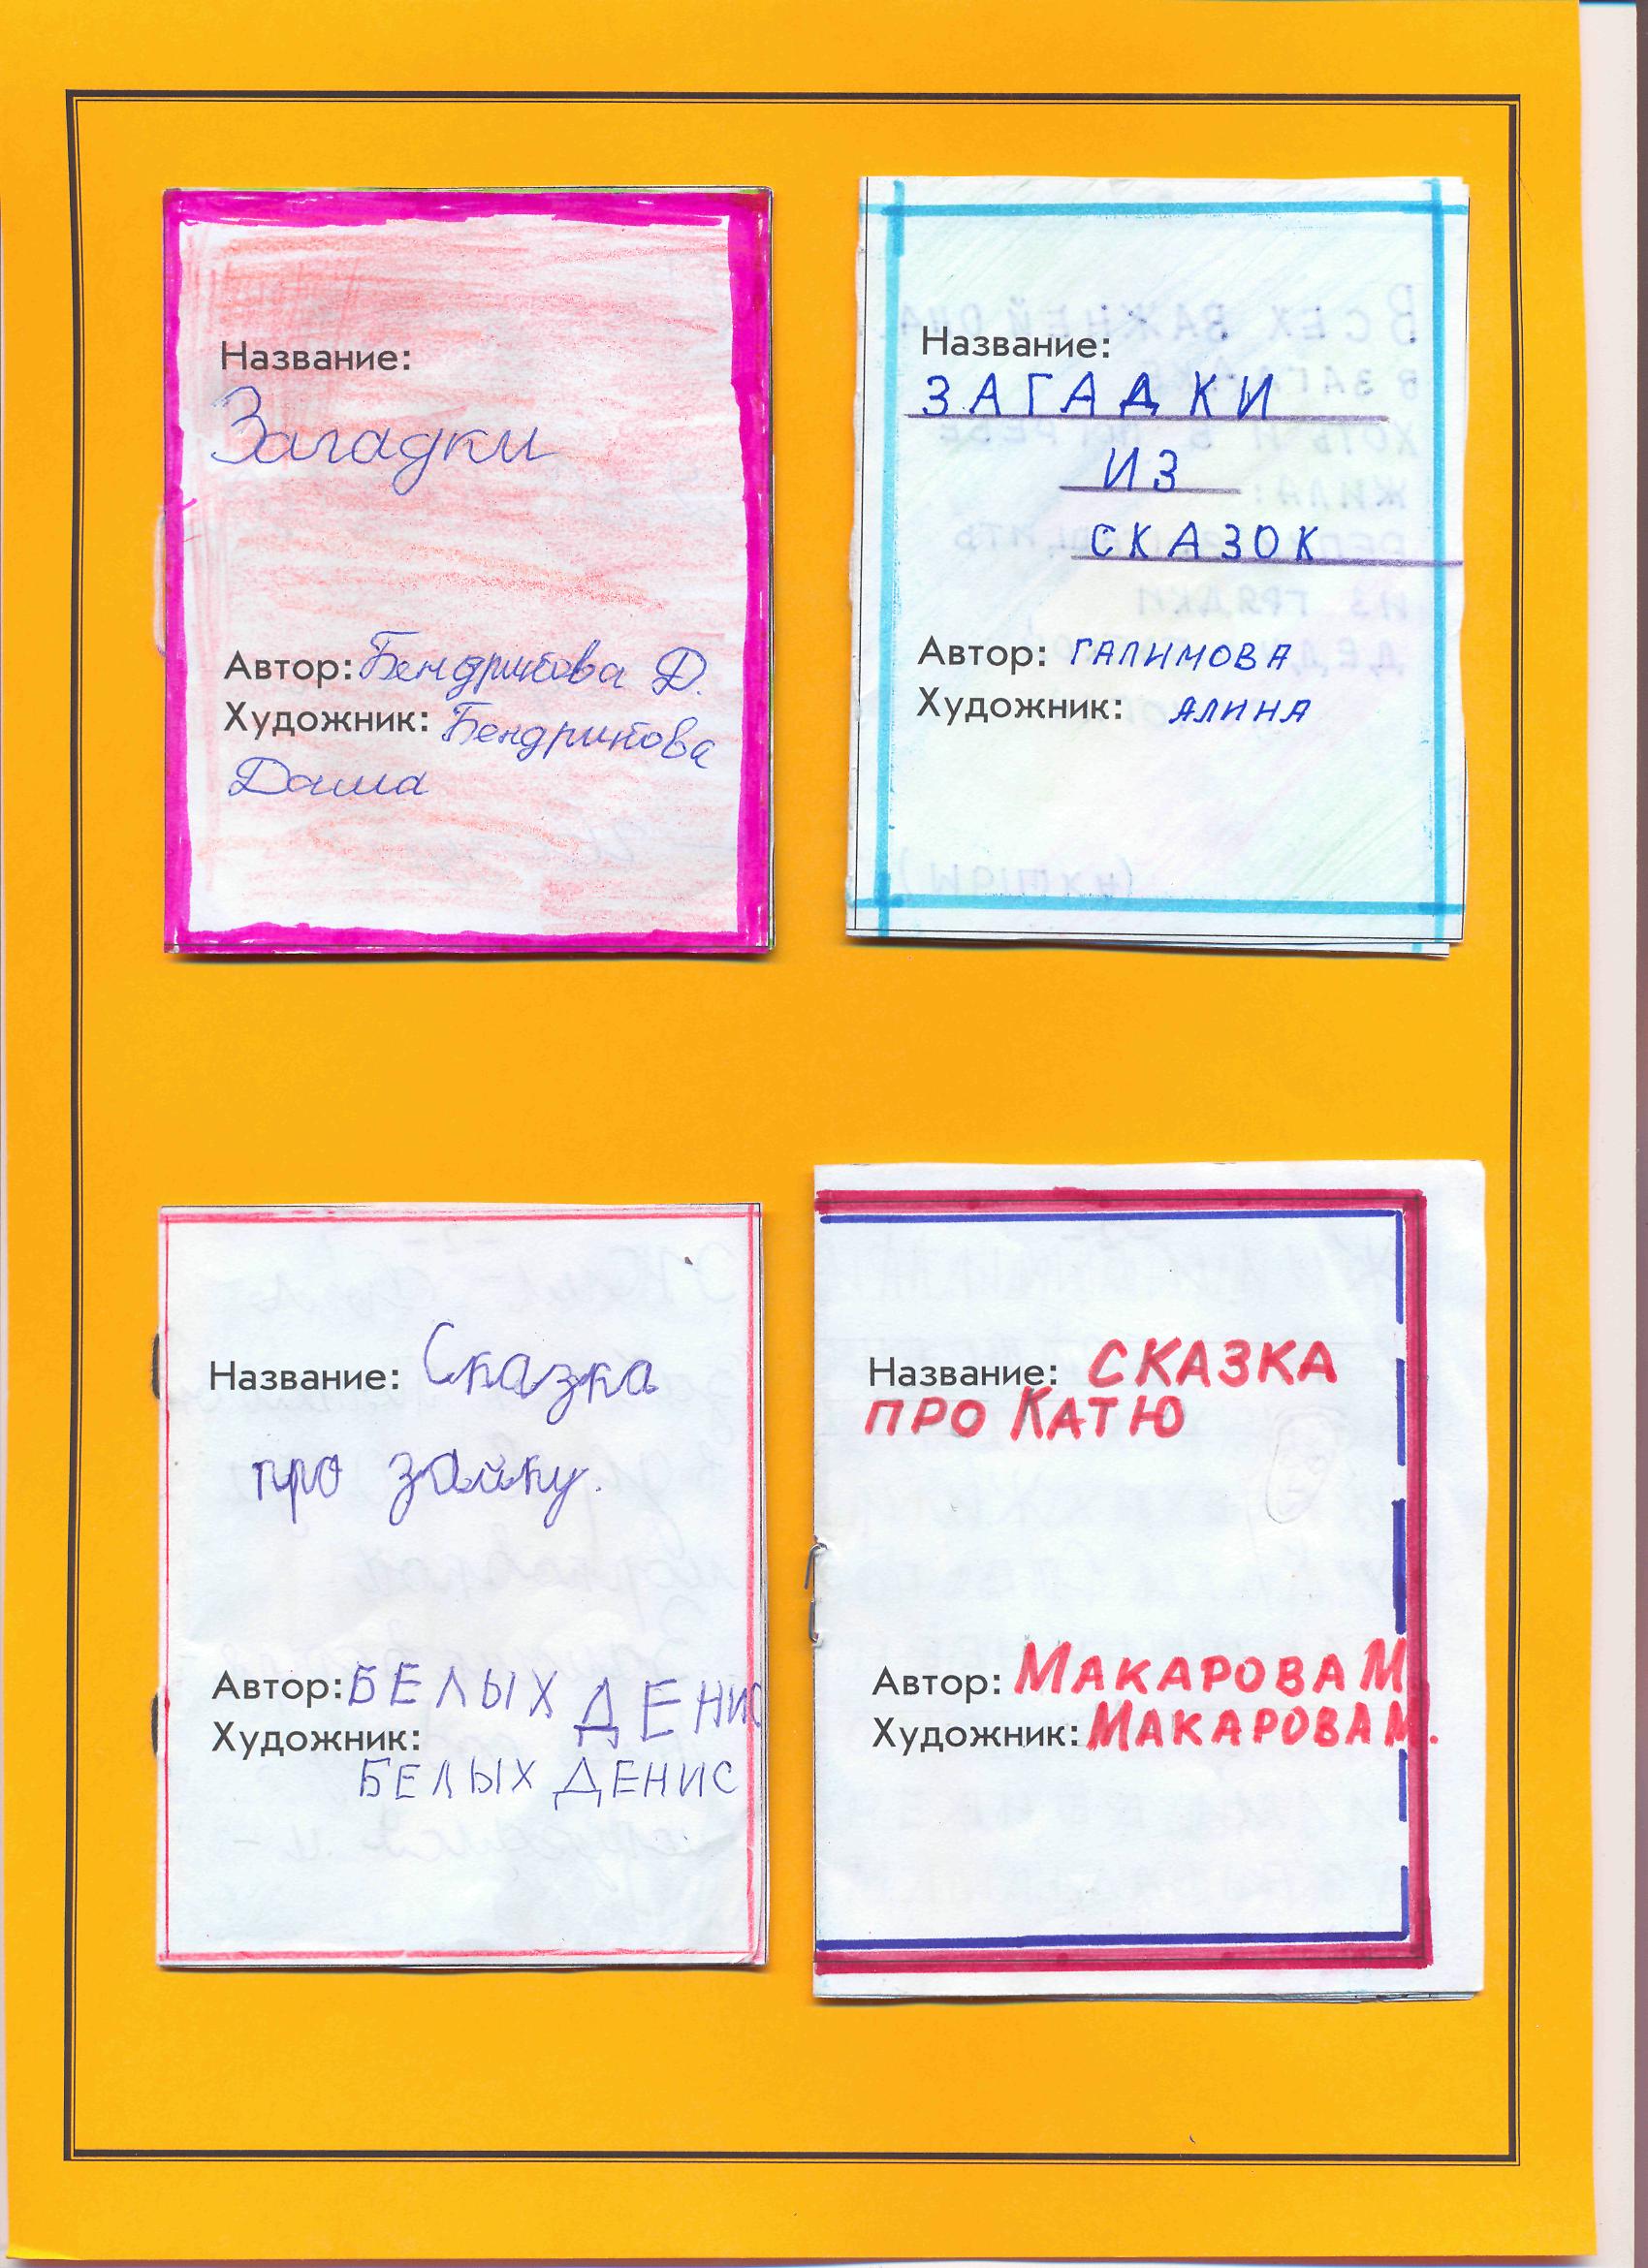 Название:
Загадки
Автор: Бендрикова Д.
Художник: Бендрикова
Даша
Название:
ЗАГАДКИ
ИЗ
СКАЗОК
Автор: ГАЛИМОВА
Художник: АЛИНА
Название: Сказка
про зайку.
Автор: БЕЛЫХ ДЕНИС
Художник:
БЕЛЫХ ДЕНИС
Название: СКАЗКА
ПРО КАТЮ
Автор: МАКАРОВА М.
Художник: МАКАРОВА М.